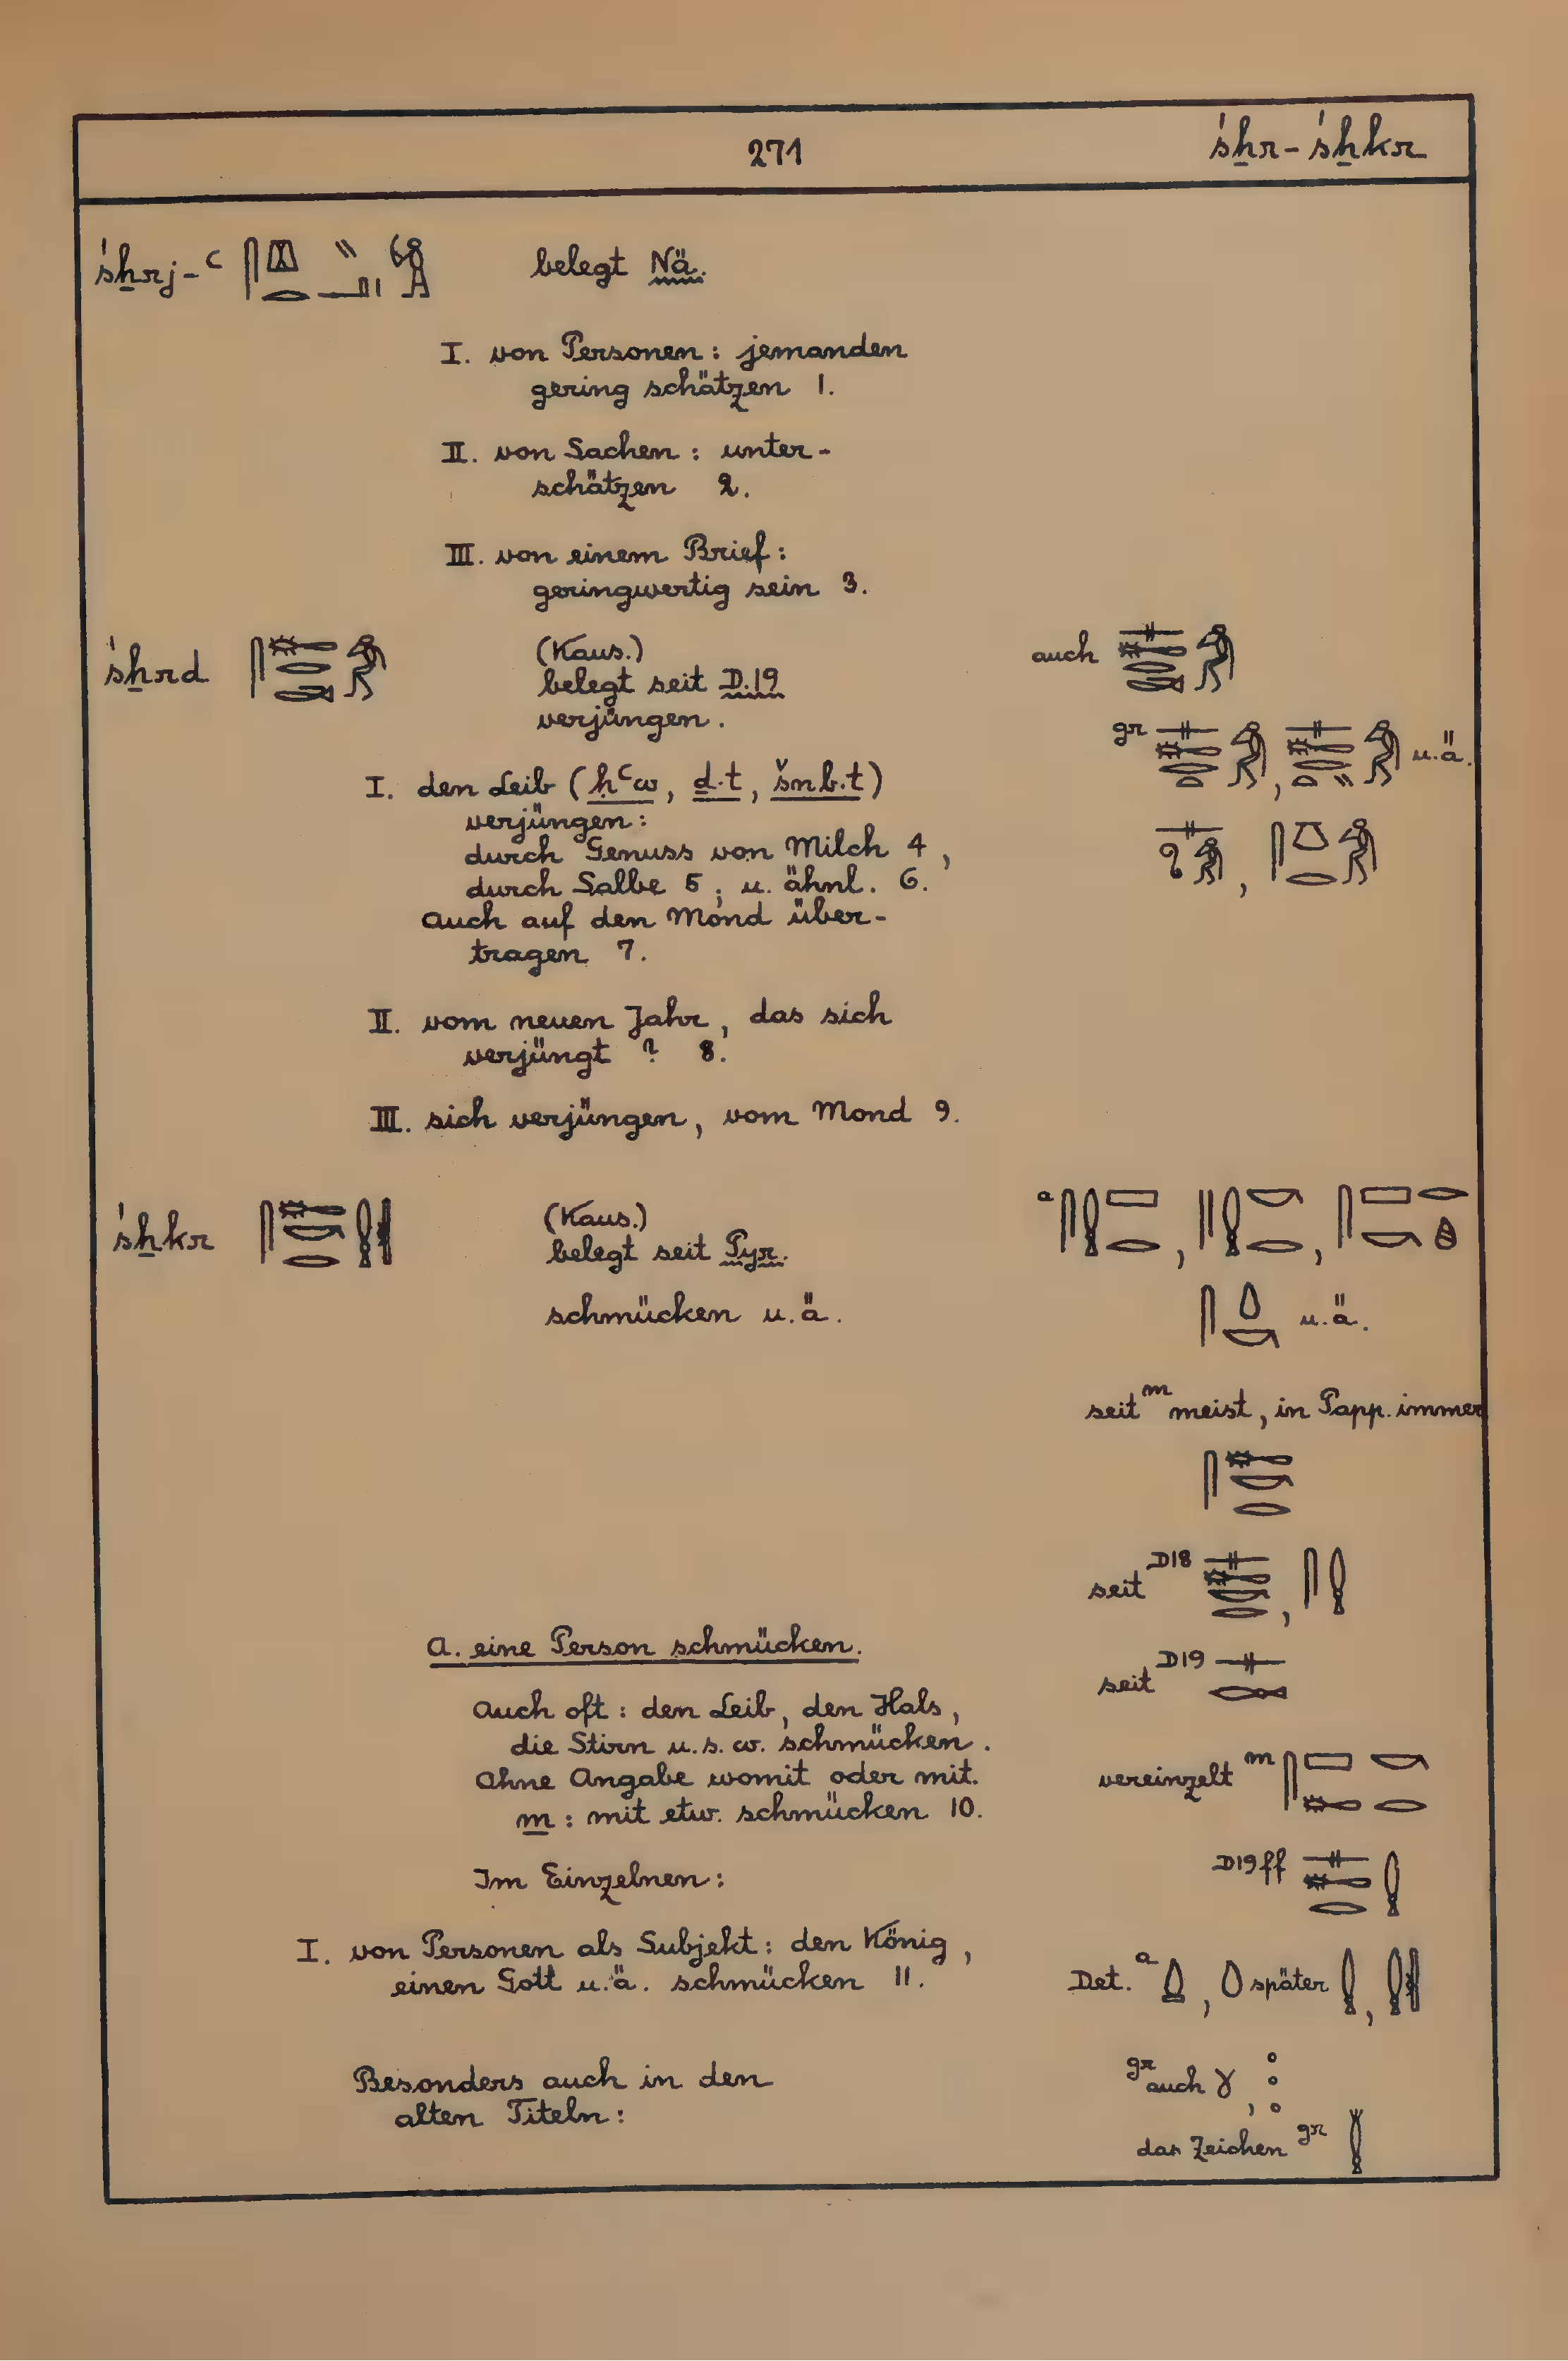 271
śẖr - śẖkr
śẖrj-ꜥ
belegt Nä.
I. von Personen: jemanden
gering schätzen 1.
II. von Sachen: unter-
schätzen 2.
III. von einem Brief:
geringwertig sein 3.
śẖrd
(Kaus.)
belegt seit D.19
verjüngen.
auch
gr , u.ä.
,
I. den Leib (ḥꜥw, ḏ.t, šnb.t)
verjüngen:
durch Genuss von Milch 4,
durch Salbe 5; u. ähnl. 6.
Auch auf den Mond über-
tragen 7.
II. vom neuen Jahr, das sich
verjüngt? 8.
III. sich verjüngen, vom Mond 9.
śẖkr
(Kaus.)
belegt seit Pyr.
schmücken u.ä.
a , ,
u.ä.
seit m meist, in Papp. immer
seit D18 ,
seit D19
vereinzelt m
D19ff
Det. a , später ,
gr auch ,
das Zeichen gr
A. eine Person schmücken.
Auch oft: den Leib, den Hals,
die Stirn u.s.w. schmücken.
Ohne Angabe womit oder mit.
m: mit etw. schmücken 10.
Im Einzelnen:
I. von Personen als Subjekt: den König,
einen Gott u.ä. schmücken 11.
Besonders auch in den
alten Titeln: